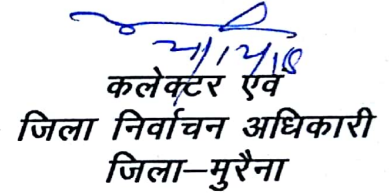 कलेक्टर एवं
जिला निर्वाचन अधिकारी
जिला–मुरैना